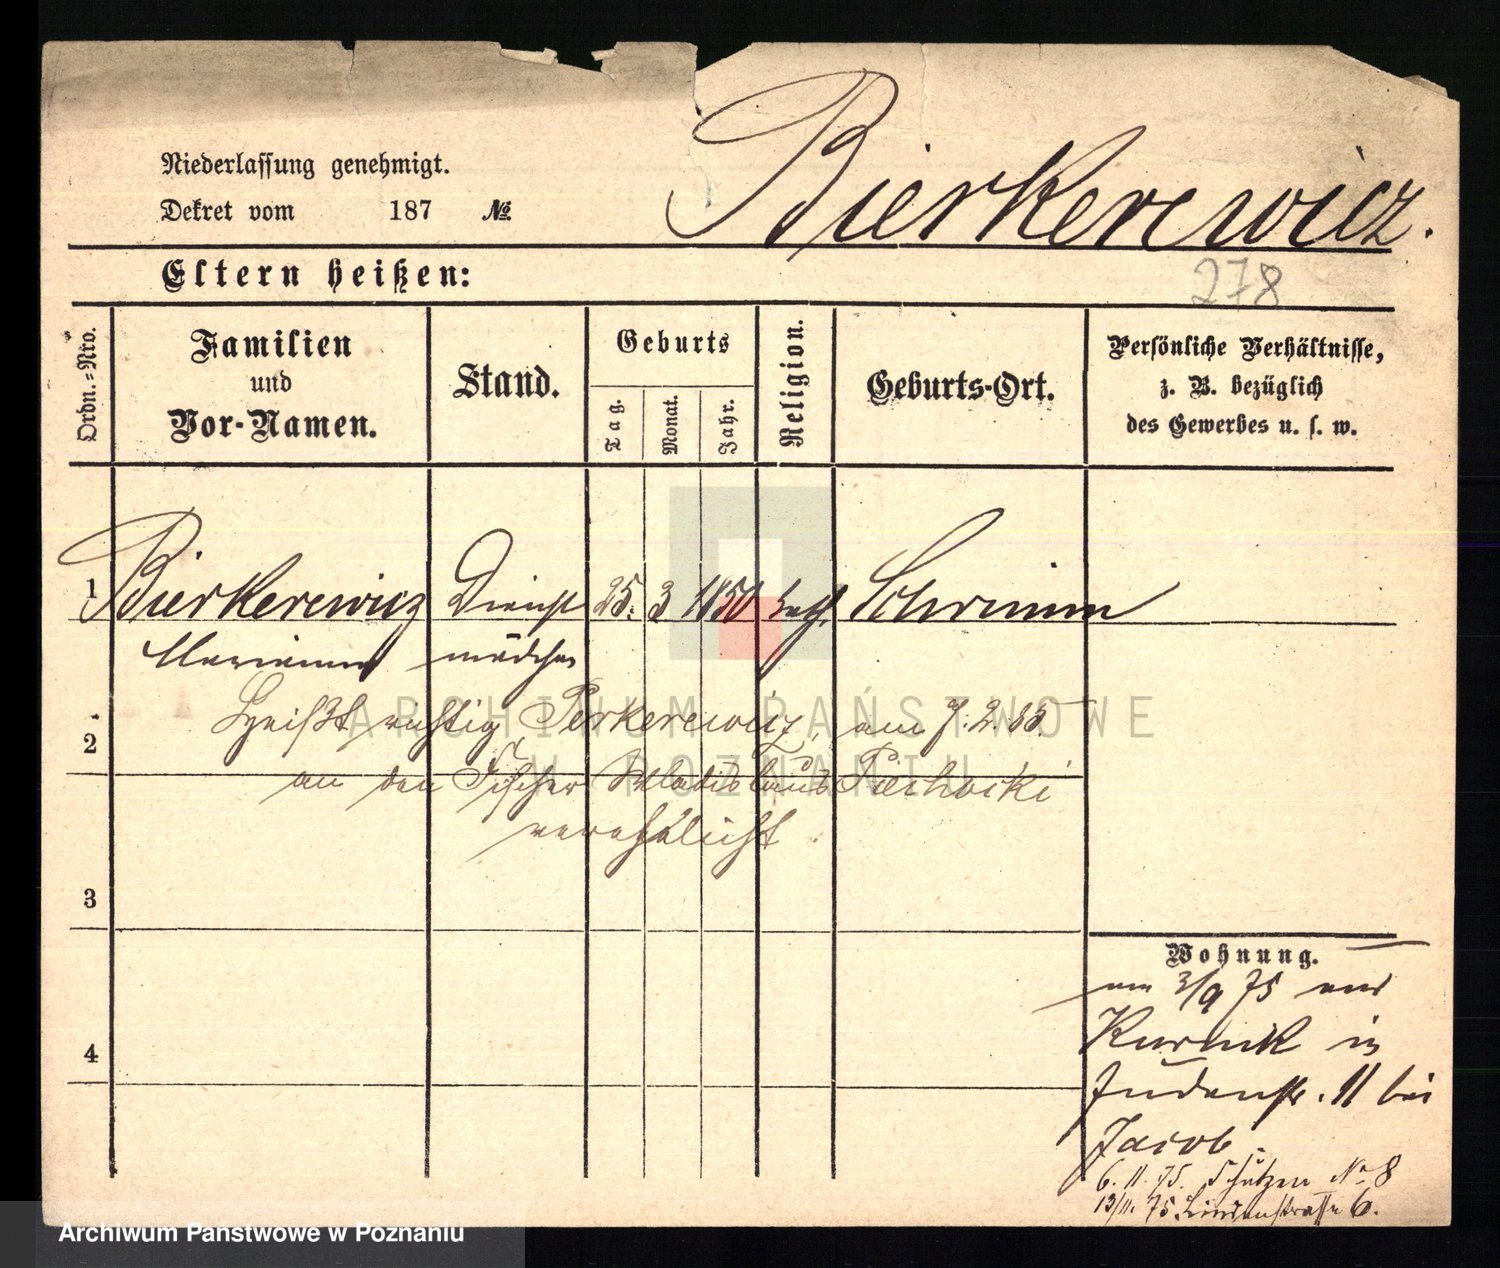 Bierkerewicz.
Niederlassung genehmigt.
Dekret vom 187 №
278
Eltern heißen:
Ordn.=Nro.
Familien und Vor-Namen.
Stand.
Geburts
Tag.
Monat.
Jahr.
Religion.
Geburts-Ort.
Persönliche Verhältnisse,
z. B. bezüglich
des Gewerbes u. s. w.
1 Bierkerewicz Dienst 25. 3 1850 kath. Schrimm
Marianna mädchen
Heißt richtig Perkerewicz, am 9.2.85.
2
an den Fischer Wladislaus Piechocki
verehelicht.
3
4
Wohnung.
am 3/9 75 aus
Kurnik in
Judenstr. 11 bei
Jacob.
6.11.75. Schützen No 8
13/11. 75. Lindenstrasse 6.
ARCHIWUM PAŃSTWOWE
W POZNANIU
Archiwum Państwowe w Poznaniu